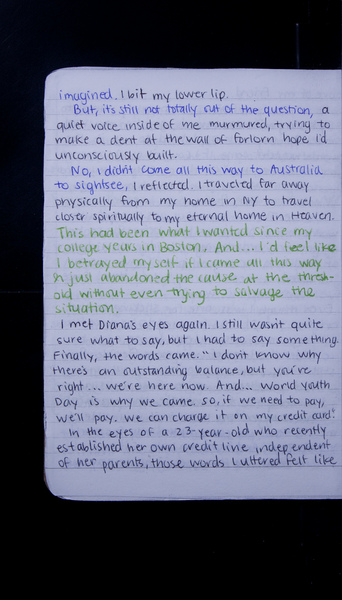 imagined. I bit my lower lip.
But, it's still not totally out of the question, a
quiet voice inside of me murmured, trying to
make a dent at the wall of forlorn hope I'd
unconsciously built.
No, I didn't come all this way to Australia
to sightsee, I reflected. I traveled far away
physically from my home in NY to travel
closer spiritually to my eternal home in Heaven.
This had been what I wanted since my
college years in Boston. And... I'd feel like
I betrayed myself if I came all this way
& just abandoned the cause at the thresh-
old without even trying to salvage the
situation.
I met Diana's eyes again. I still wasn't quite
sure what to say, but I had to say something.
Finally, the words came. "I don't know why
there's an outstanding balance, but you're
right... we're here now. And... World Youth
Day is why we came. So, if we need to pay,
we'll pay. We can charge it on my credit card."
In the eyes of a 23-year-old who recently
established her own credit line independent
of her parents, those words I uttered felt like